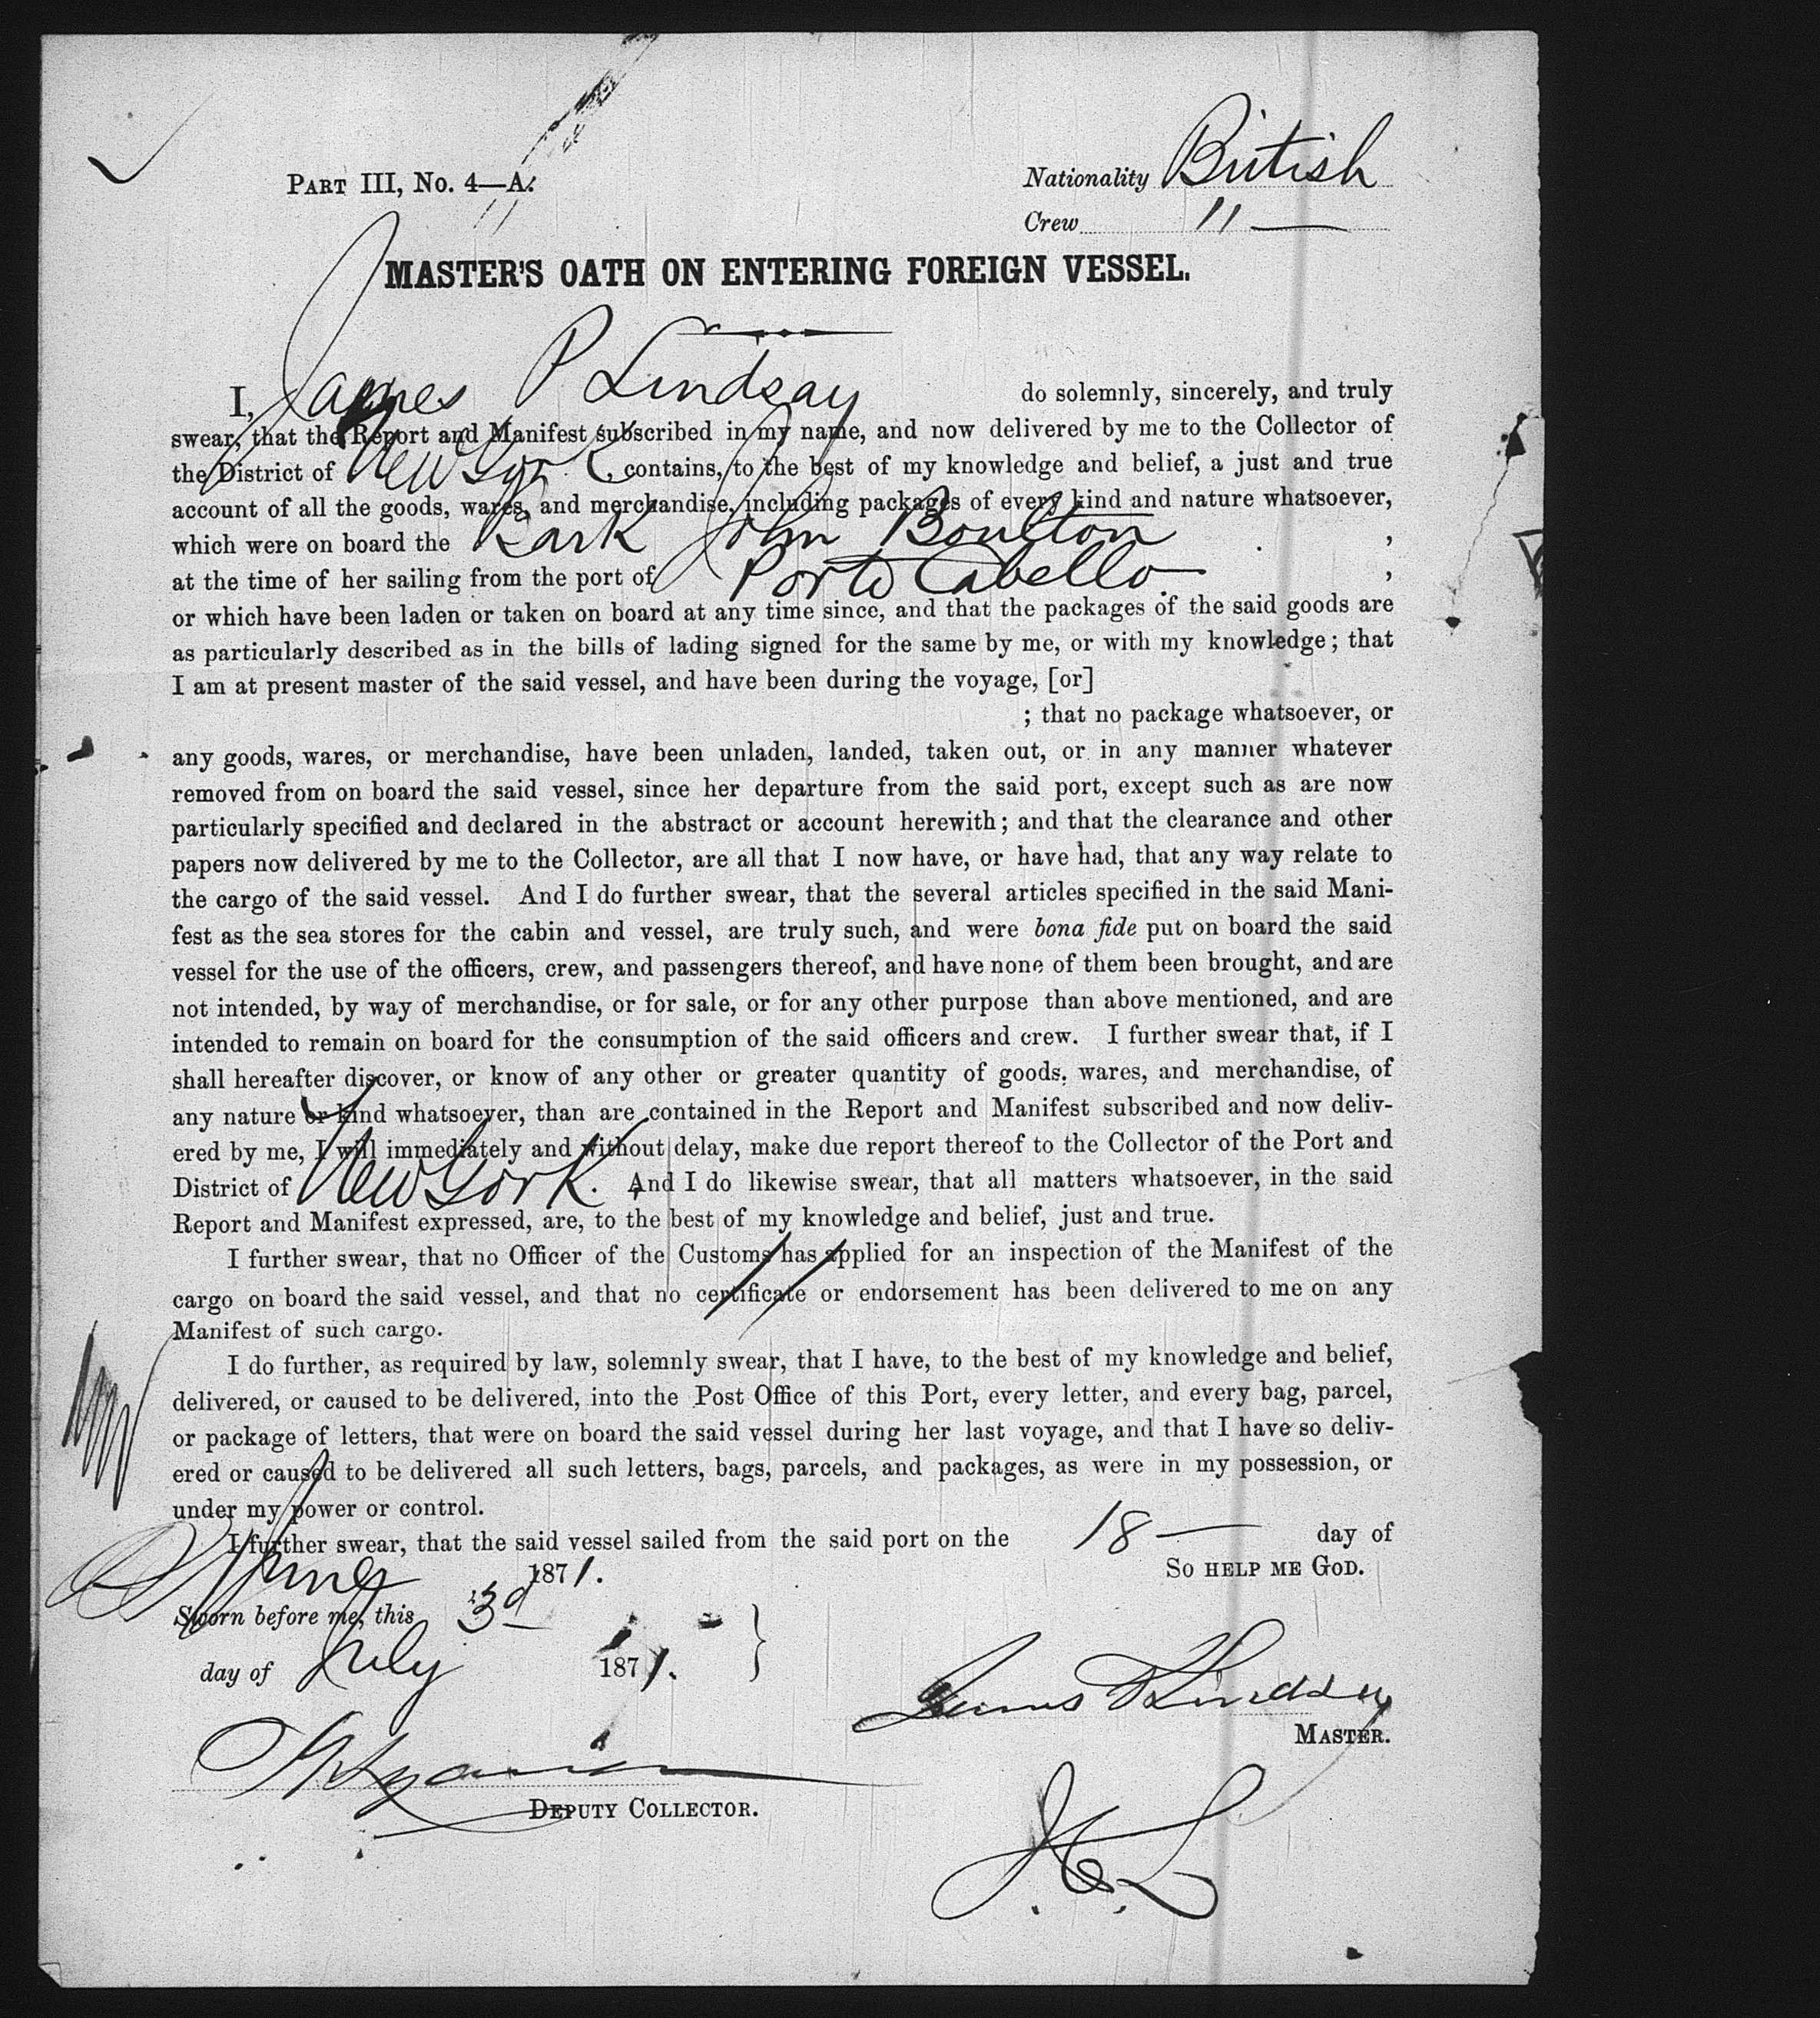 PART III, No. 4—A.
Nationality British
Crew 11 —
MASTER'S OATH ON ENTERING FOREIGN VESSEL.
I, James P Lindsay do solemnly, sincerely, and truly
swear, that the Report and Manifest subscribed in my name, and now delivered by me to the Collector of
the District of New York contains, to the best of my knowledge and belief, a just and true
account of all the goods, wares, and merchandise, including packages of every kind and nature whatsoever,
which were on board the Bark John Boulton ,
at the time of her sailing from the port of Porto Cabello ,
or which have been laden or taken on board at any time since, and that the packages of the said goods are
as particularly described as in the bills of lading signed for the same by me, or with my knowledge; that
I am at present master of the said vessel, and have been during the voyage, [or]
; that no package whatsoever, or
any goods, wares, or merchandise, have been unladen, landed, taken out, or in any manner whatever
removed from on board the said vessel, since her departure from the said port, except such as are now
particularly specified and declared in the abstract or account herewith; and that the clearance and other
papers now delivered by me to the Collector, are all that I now have, or have had, that any way relate to
the cargo of the said vessel. And I do further swear, that the several articles specified in the said Mani-
fest as the sea stores for the cabin and vessel, are truly such, and were bona fide put on board the said
vessel for the use of the officers, crew, and passengers thereof, and have none of them been brought, and are
not intended, by way of merchandise, or for sale, or for any other purpose than above mentioned, and are
intended to remain on board for the consumption of the said officers and crew. I further swear that, if I
shall hereafter discover, or know of any other or greater quantity of goods, wares, and merchandise, of
any nature or kind whatsoever, than are contained in the Report and Manifest subscribed and now deliv-
ered by me, I will immediately and without delay, make due report thereof to the Collector of the Port and
District of New York. And I do likewise swear, that all matters whatsoever, in the said
Report and Manifest expressed, are, to the best of my knowledge and belief, just and true.
I further swear, that no Officer of the Customs has applied for an inspection of the Manifest of the
cargo on board the said vessel, and that no certificate or endorsement has been delivered to me on any
Manifest of such cargo.
I do further, as required by law, solemnly swear, that I have, to the best of my knowledge and belief,
delivered, or caused to be delivered, into the Post Office of this Port, every letter, and every bag, parcel,
or package of letters, that were on board the said vessel during her last voyage, and that I have so deliv-
ered or caused to be delivered all such letters, bags, parcels, and packages, as were in my possession, or
under my power or control.
I further swear, that the said vessel sailed from the said port on the 18 — day of
June 1871. SO HELP ME GOD.
Sworn before me, this 3d
day of July 1871.
James P Lindsay
MASTER.
DEPUTY COLLECTOR.